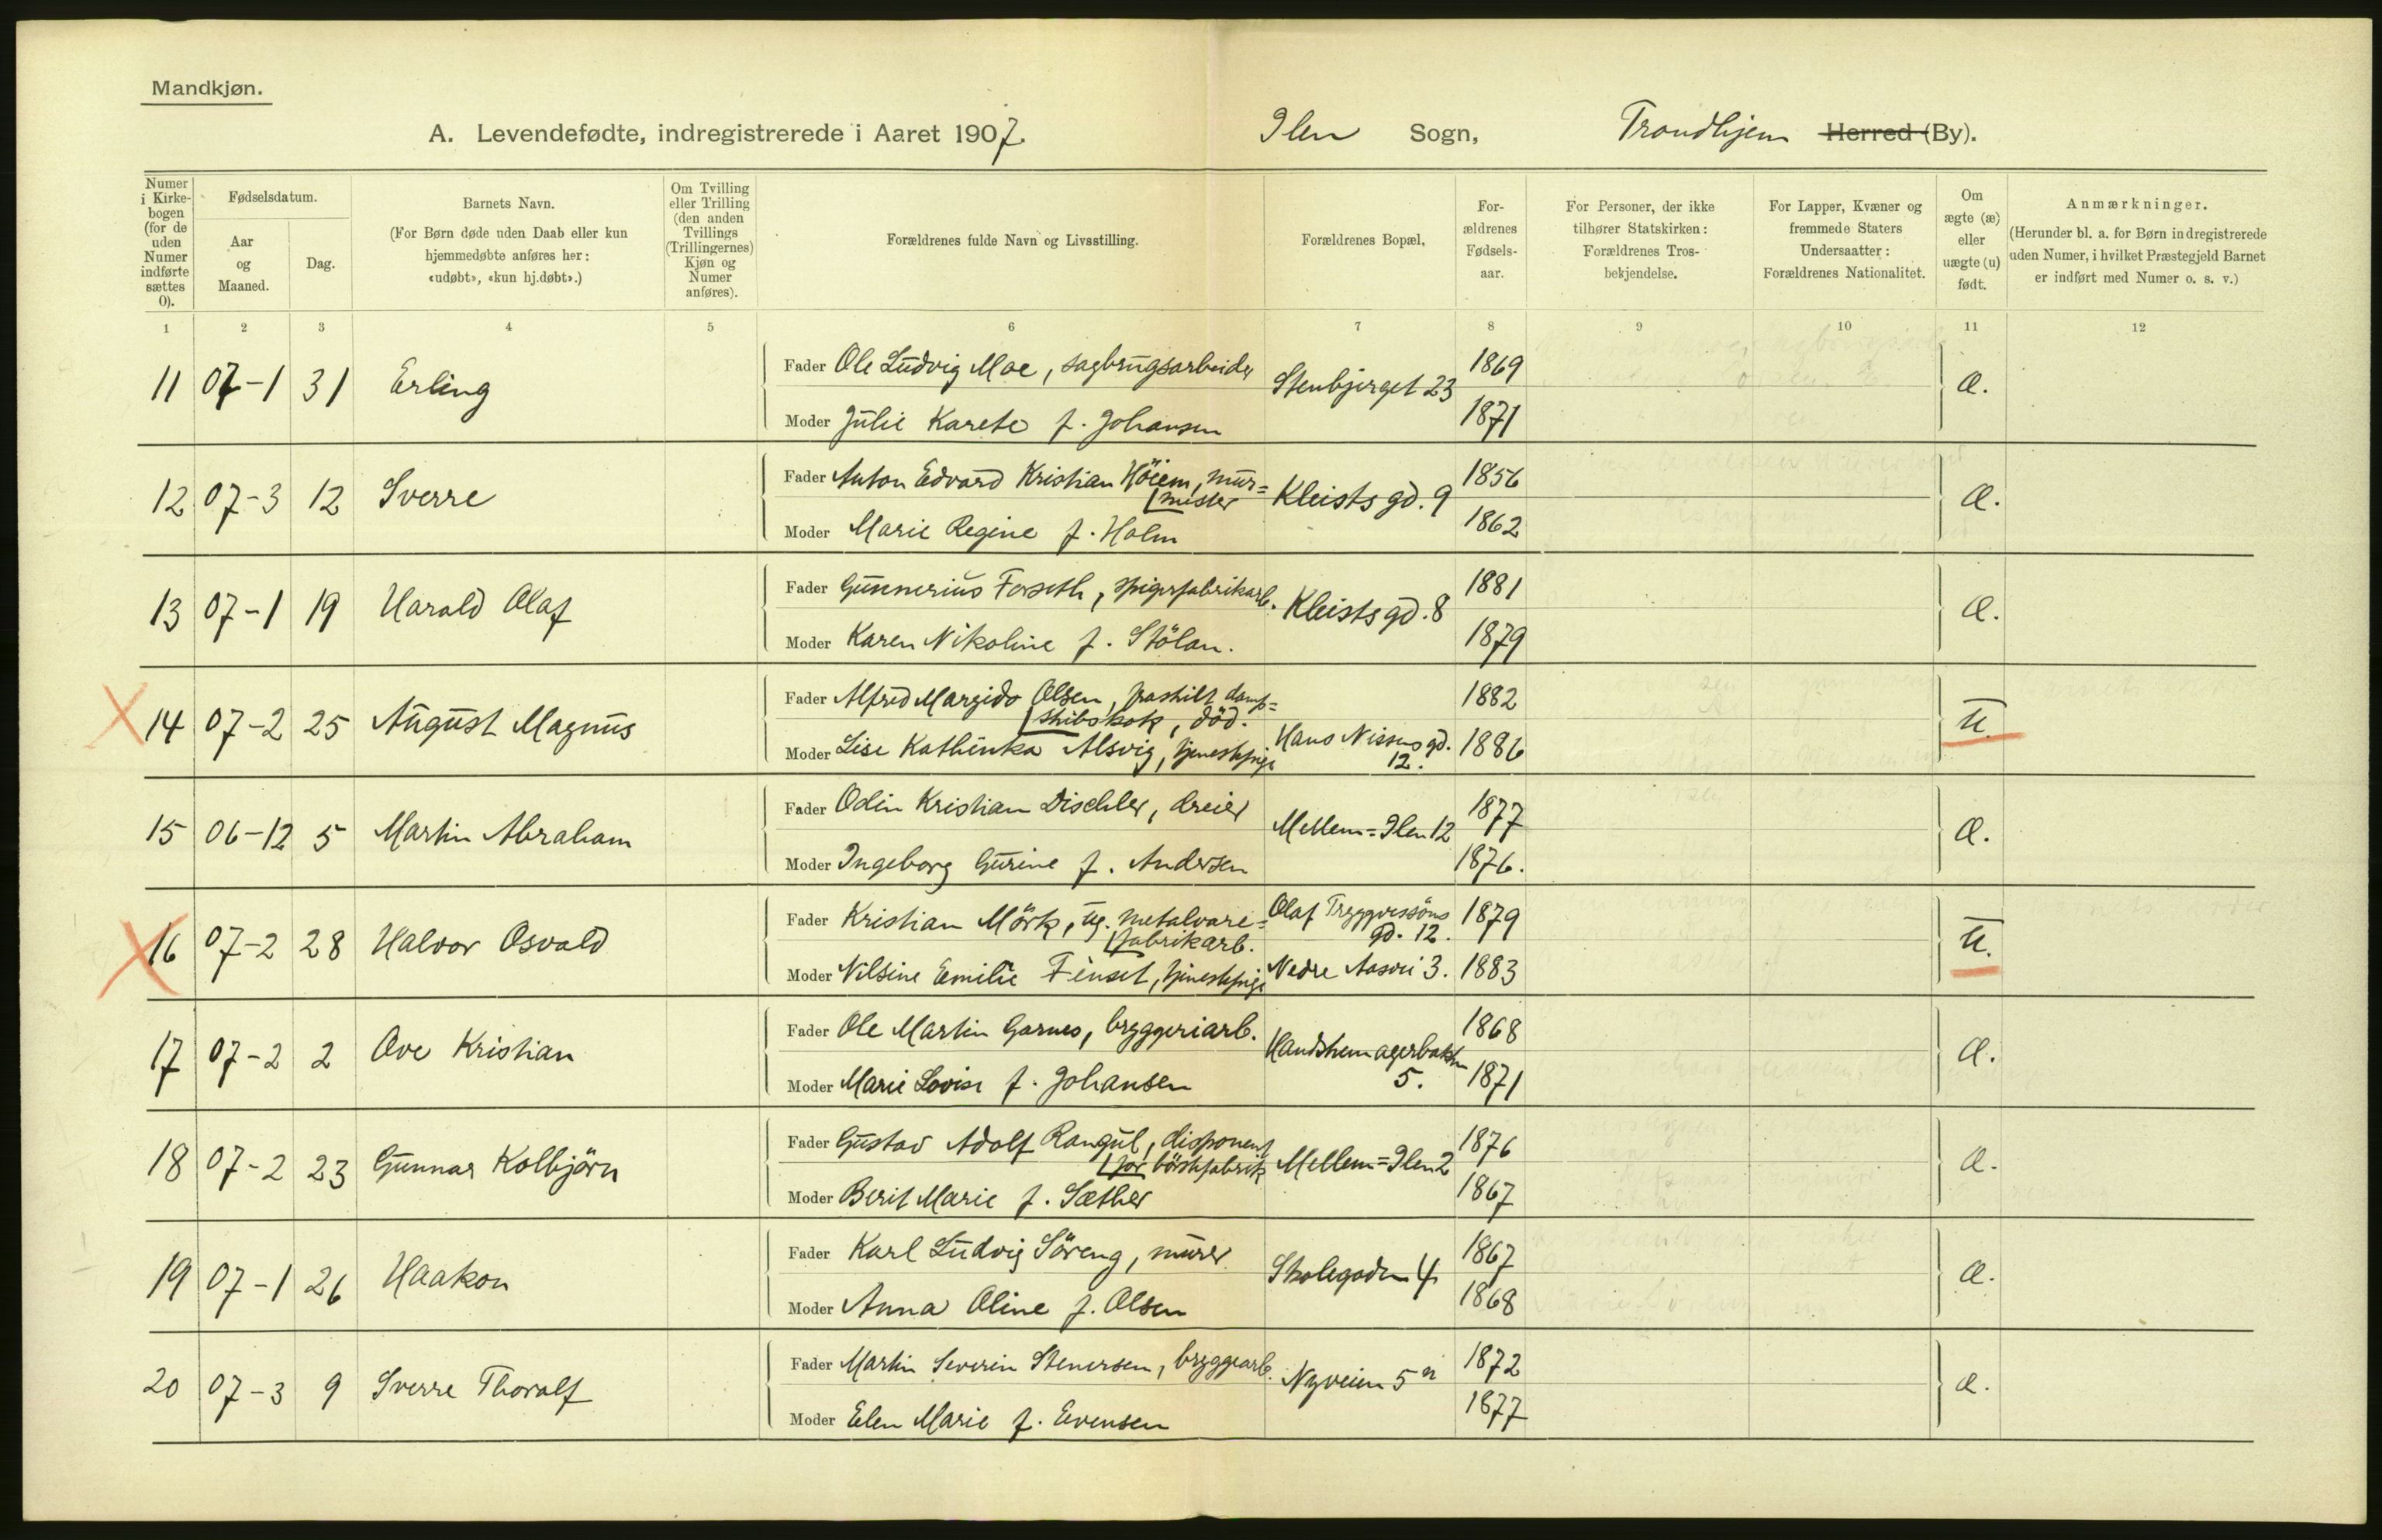 Mandkjøn.
A. Levendefødte, indregistrerede i Aaret 1907. Ilen Sogn, Trondhjem Herred (By).
Numer i Kirkebogen (for de uden Numer indførte sættes 0).
Fødselsdatum.
Aar og Maaned.
Dag.
Barnets Navn.
(For Børn døde uden Daab eller kun hjemmedøbte anføres her: «udøbt», «kun hj.døbt».)
Om Tvilling eller Trilling (den anden Tvillings (Trillingernes) Kjøn og Numer anføres).
Forældrenes fulde Navn og Livsstilling.
Forældrenes Bopæl,
Forældrenes Fødselsaar.
For Personer, der ikke tilhører Statskirken: Forældrenes Trosbekjendelse.
For Lapper, Kvæner og fremmede Staters Undersaatter: Forældrenes Nationalitet.
Om ægte (æ) eller uægte (u) født.
Anmærkninger.
(Herunder bl. a. for Børn indregistrerede uden Numer, i hvilket Præstegjeld Barnet er indført med Numer o. s. v.)
1 2 3 4 5 6 7 8 9 10 11 12
11 07-1 31 Erling
Fader Ole Ludvig Moe, sagbrugsarbeider Stenbjerget 23 1869 æ.
Moder Julie Karete f. Johansen 1871
12 07-3 12 Sverre
Fader Anton Edvard Kristian Höiem, mur=
mester Kleists gd. 9 1856 æ.
Moder Marie Regine f. Holm 1862
13 07-1 19 Harald Olaf
Fader Gunnerius Forseth, spigerfabrikarb. Kleists gd. 8 1881 æ.
Moder Karen Nikoline f. Stölan. 1879
14 07-2 25 August Magnus
Fader Alfred Margido Olsen, fraskilt damp=
skibskok, död. 1882 u.
Moder Lise Kathinka Alsvig, tjenestepige Hans Nissens gd. 12. 1886
15 06-12 5 Martin Abraham
Fader Odin Kristian Dischler, dreier Mellem=Ilen 12 1877 æ.
Moder Ingeborg Gurine f. Andersen 1876.
16 07-2 28 Halvor Osvald
Fader Kristian Mörk, ug. metalvare=
fabrikarb. Olaf Tryggvessöns gd. 12. 1879 u.
Moder Nilsine Emilie Finset, tjenestepige Nedre Aasvei 3. 1883
17 07-2 2 Ove Kristian
Fader Ole Martin Garnes, bryggeriarb. Handskemagerbakken 5. 1868 æ.
Moder Marie Lovise f. Johansen 1871
18 07-2 23 Gunnar Kolbjörn
Fader Gustav Adolf Rangul, disponent
for börstefabrik Mellem=Ilen 2 1876 æ.
Moder Berit Marie f. Sæther 1867
19 07-1 26 Haakon
Fader Karl Ludvig Söreng, murer Skolegaden 4 1867 æ.
Moder Anna Oline f. Olsen 1868
20 07-3 9 Sverre Thoralf
Fader Martin Severin Stenersen, bryggearb. Nyveien 5 1872 æ.
Moder Elen Marie f. Evensen 1877